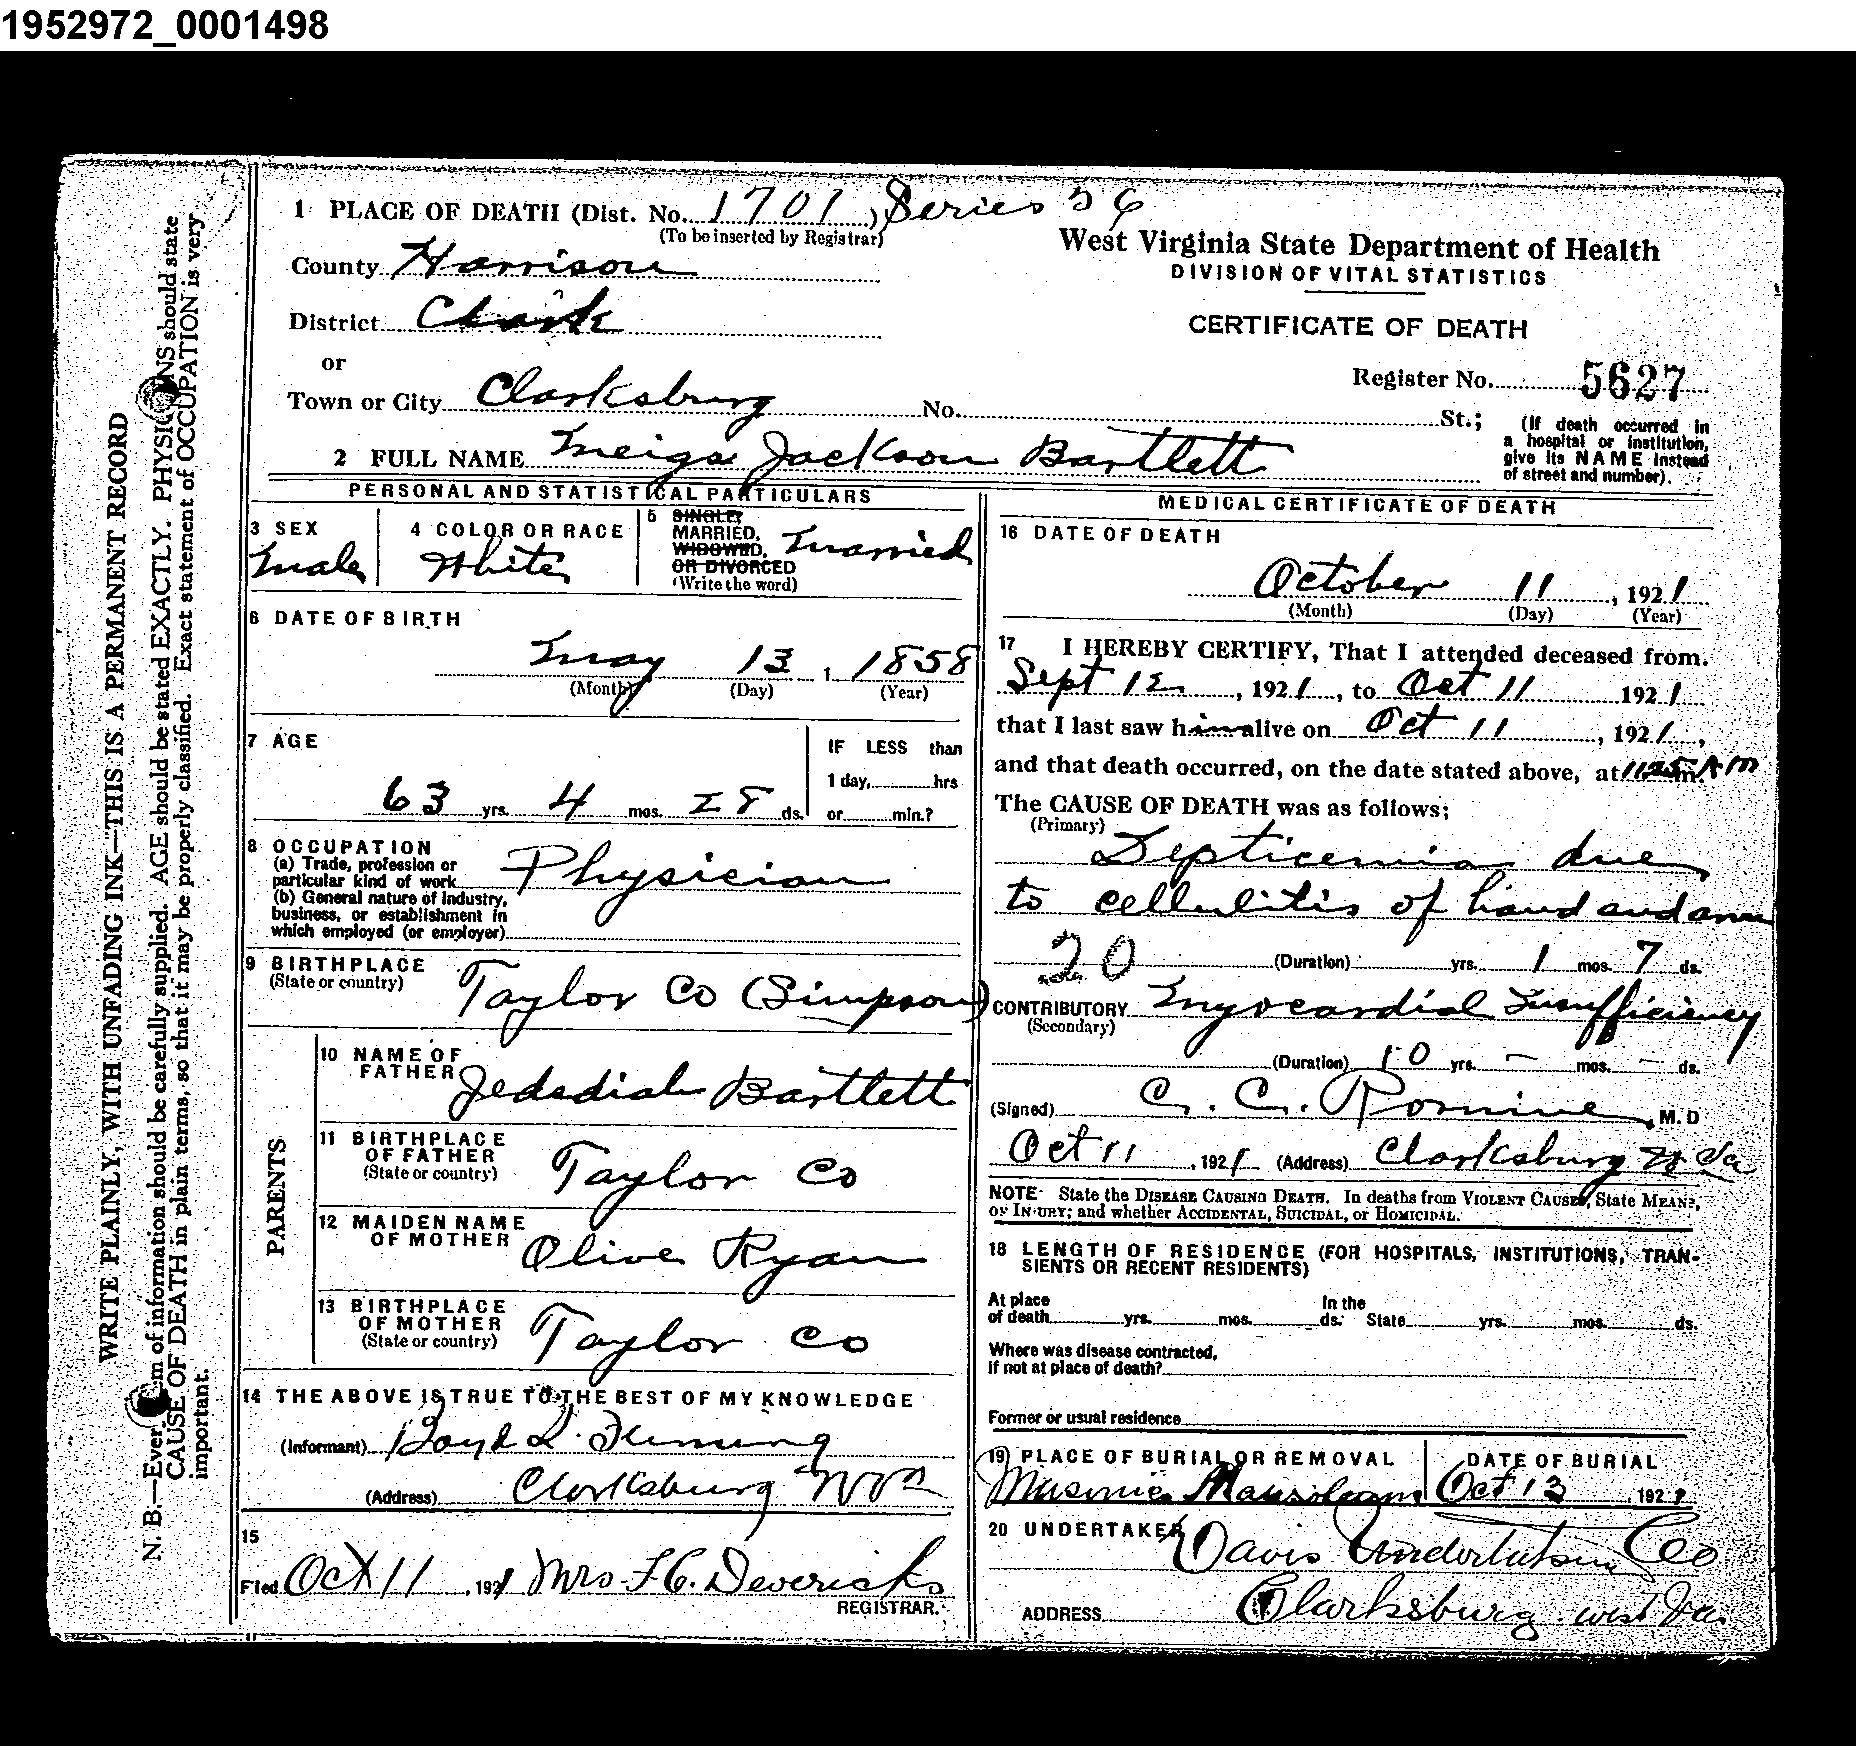 1952972_0001498
WRITE PLAINLY, WITH UNFADING INK—THIS IS A PERMANENT RECORD
N. B.—Every item of information should be carefully supplied. AGE should be stated EXACTLY. PHYSICIANS should state
CAUSE OF DEATH in plain terms, so that it may be properly classified. Exact statement of OCCUPATION is very
important.
1 PLACE OF DEATH (Dist. No. 1701) Series 56
(To be inserted by Registrar)
County Harrison
District Clark
or
Town or City Clarksburg No. St.;
West Virginia State Department of Health
DIVISION OF VITAL STATISTICS
CERTIFICATE OF DEATH
Register No. 5627
(If death occurred in
a hospital or institution,
give its NAME instead
of street and number).
2 FULL NAME Meigs Jackson Bartlett
PERSONAL AND STATISTICAL PARTICULARS
3 SEX
Male
4 COLOR OR RACE
White
5 SINGLE,
MARRIED,
WIDOWED,
OR DIVORCED
(Write the word)
Married
6 DATE OF BIRTH
May 13, 1858
(Month) (Day) (Year)
7 AGE
63 yrs. 4 mos. 28 ds.
IF LESS than
1 day, hrs
or min.?
8 OCCUPATION
(a) Trade, profession or
particular kind of work Physician
(b) General nature of Industry,
business, or establishment in
which employed (or employer)
9 BIRTHPLACE
(State or country) Taylor Co (Simpson)
PARENTS
10 NAME OF
FATHER Jedediah Bartlett
11 BIRTHPLACE
OF FATHER
(State or country) Taylor Co
12 MAIDEN NAME
OF MOTHER Olive Ryan
13 BIRTHPLACE
OF MOTHER
(State or country) Taylor Co
14 THE ABOVE IS TRUE TO THE BEST OF MY KNOWLEDGE
(Informant) Boyd L. Fleming
(Address) Clarksburg WVa
15
Filed Oct 11, 1921 Mrs. F. C. Devericks
REGISTRAR.
MEDICAL CERTIFICATE OF DEATH
16 DATE OF DEATH
October 11, 1921
(Month) (Day) (Year)
17 I HEREBY CERTIFY, That I attended deceased from.
Sept 12, 1921, to Oct 11 1921
that I last saw him alive on Oct 11, 1921,
and that death occurred, on the date stated above, at 11.25 m. A M
The CAUSE OF DEATH was as follows;
(Primary)
Septicemia due
to cellulitis of hand and arm
20 (Duration) yrs. 1 mos. 7 ds.
CONTRIBUTORY Myocardial Insufficiency
(Secondary)
(Duration) 10 yrs. - mos. - ds.
(Signed) C. C. Romine, M. D
Oct 11, 1921 (Address) Clarksburg W Va
NOTE State the DISEASE CAUSING DEATH. In deaths from VIOLENT CAUSES, State MEANS,
OF INJURY; and whether ACCIDENTAL, SUICIDAL, or HOMICIDAL.
18 LENGTH OF RESIDENCE (FOR HOSPITALS, INSTITUTIONS, TRAN-
SIENTS OR RECENT RESIDENTS)
At place In the
of death yrs. mos. ds. State yrs. mos. ds.
Where was disease contracted,
if not at place of death?
Former or usual residence
19 PLACE OF BURIAL OR REMOVAL
Masonic Mausoleum
DATE OF BURIAL
Oct 13, 1921
20 UNDERTAKER Davis Undertaking Co
ADDRESS Clarksburg West Va